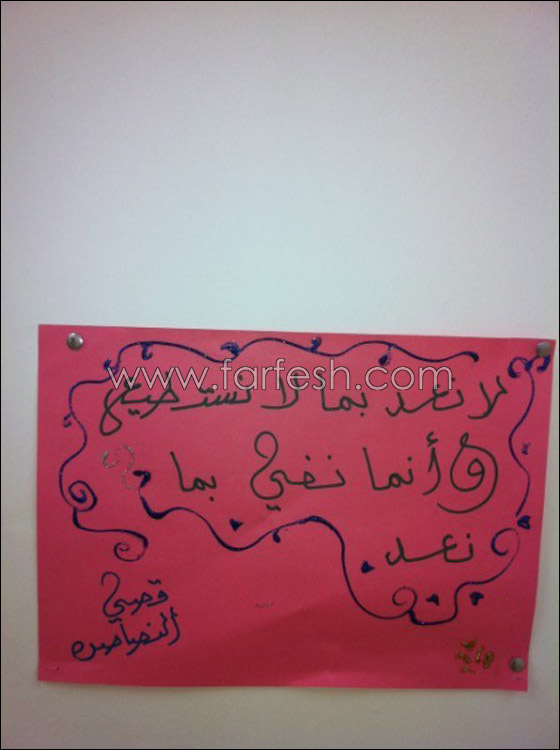 www.farfesh.com
لا نعد بما لا نستطيع
وأنما نفي بما
نعد
قصي